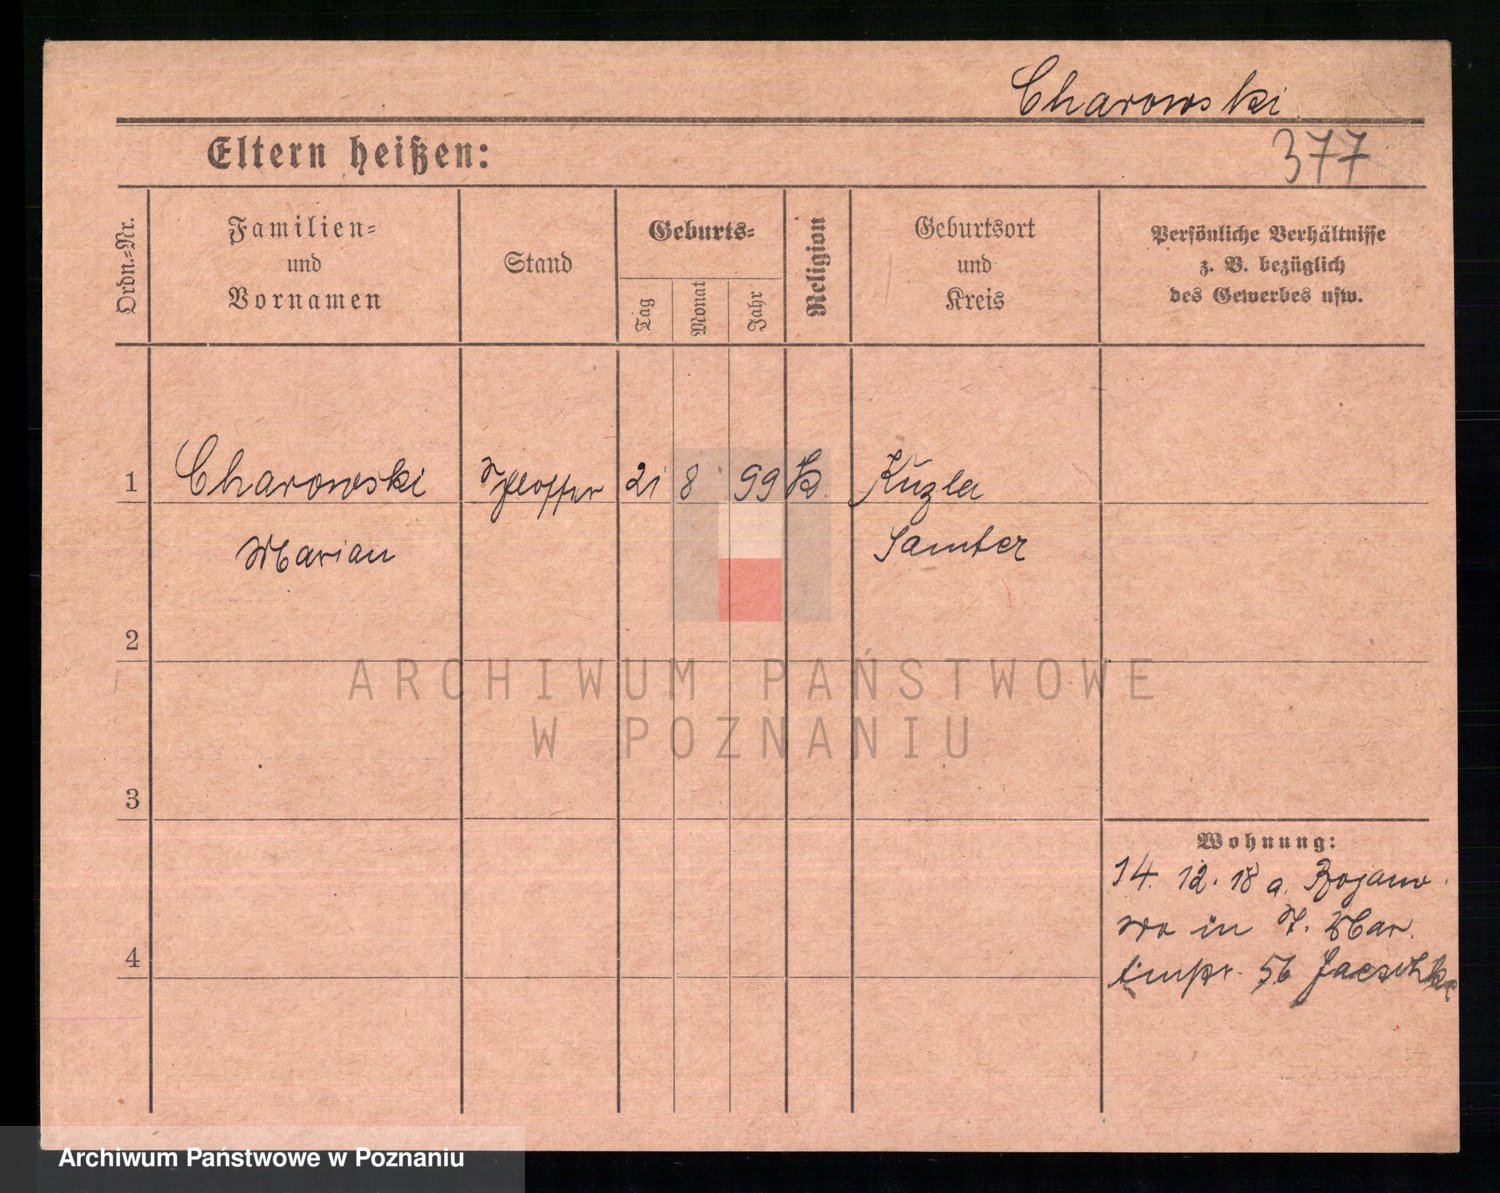 Charowski
377
Eltern heißen:
Ordn.-Nr.
Familien-
und
Vornamen
Stand
Geburts-
Tag
Monat
Jahr
Religion
Geburtsort
und
Kreis
Persönliche Verhältnisse
z. B. bezüglich
des Gewerbes usw.
1 Charowski Schlosser 21 8 99 K. Kuzle
Marian Samter
2
ARCHIWUM PAŃSTWOWE
W POZNANIU
3
Wohnung:
14. 12. 18 a. Bojano
wo in St. Mar.
4
tinstr. 56 Jaeschke
Archiwum Państwowe w Poznaniu